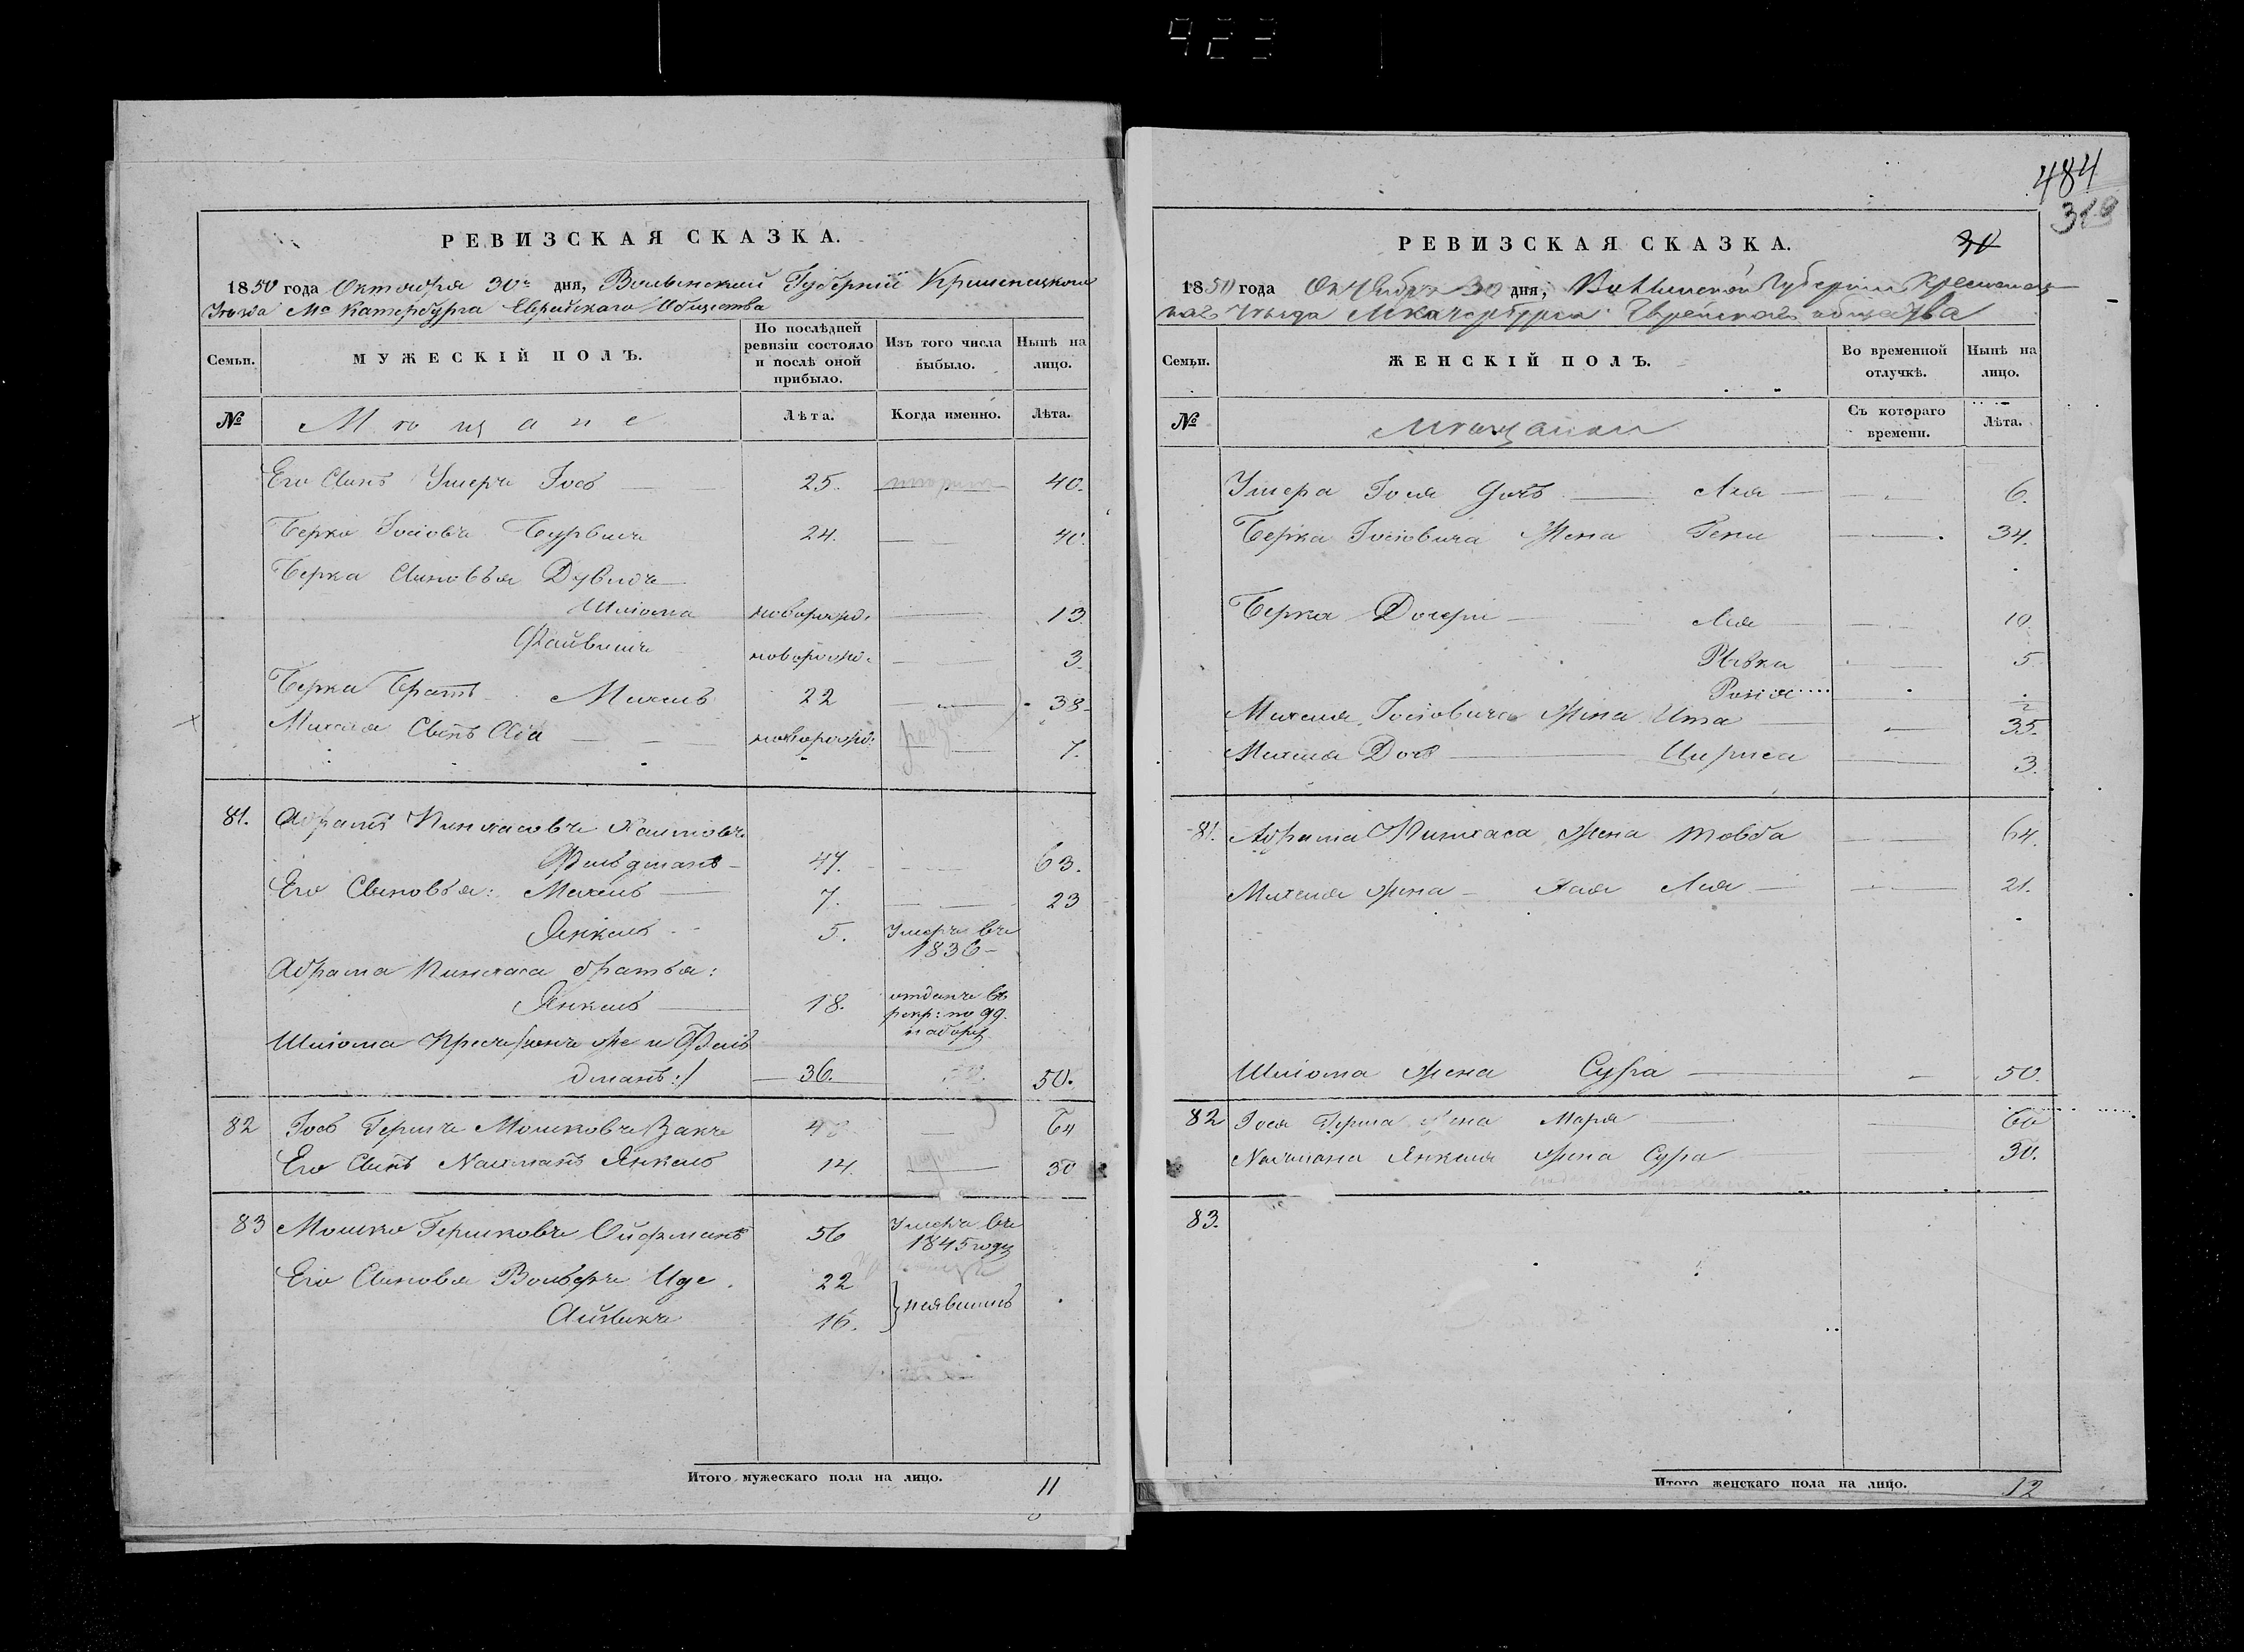 923
РЕВИЗСКАЯ СКАЗКА.
1850 года Октября 30го дня, Волынской Губерній Кременецкого
Уѣзда Мѣ Катербурга Еврейскаго Общества
Семьи. МУЖЕСКІЙ ПОЛЪ. По послѣдней ревизіи состояло и послѣ оной прибыло. Изъ того числа выбыло. Нынѣ на лицо.
№ Мѣщане Лѣта. Когда именно. Лѣта.
Его Сынъ Умеръ Іось 25. 40.
Берко Іосіовъ 24. 40.
Берка Сыновья Дувидъ
Шліома новорожд. 13.
Файвишъ новорожд. 3.
Берка Братъ Михель 22 38
Михеля Сынъ Аба новорожд. 7.
81. Абрамъ Пинхасовъ Хаимовъ
Фельдманъ 47. 63.
Его Сыновья: Михель 7. 23
Янкель 5. Умеръ въ
1836
Абрама Пинхаса братья:
Янкель 18. отданъ въ
рекр: по 99.
набору
Шліома же и Фель
дманъ:/ 36. 50.
82 Іось Гершъ Мошковъ Закъ 48 64
Его Сынъ Нахманъ Янкель 14. 30
83 Мошко Гершковъ Ойфманъ 56 Умеръ въ
1845 году
Его Сыновья Вольфъ Иде 22
неявились
Айзикъ 16.
Итого мужескаго пола на лицо. 11
484
319
30
РЕВИЗСКАЯ СКАЗКА.
1850 года Октября 30 дня, Волынской Губерніи Кременец
каго Уѣзда М Катербурга Еврейскаго общества
Семьи. ЖЕНСКІЙ ПОЛЪ. Во временной отлучкѣ. Нынѣ на лицо.
№ Мѣщанки Съ котораго времени. Лѣта.
Умера Іося дочь Лея 6.
Берка Іосіовича Жена Гени 34.
Берка Дочери Лея 10
Ривка 5
Розія 2
Михеля Іосіовича Жена Ита 35.
Михеля Дочь Цириса 3.
81. Абрама Пинхаса Жена Товба 64.
Михеля жена Хая Лея 21.
Шліома жена Сура 50.
82 Іося Герша Жена Маря 60
Нахмана Янкеля жена Сура 30.
83.
Итого женскаго пола на лицо. 12